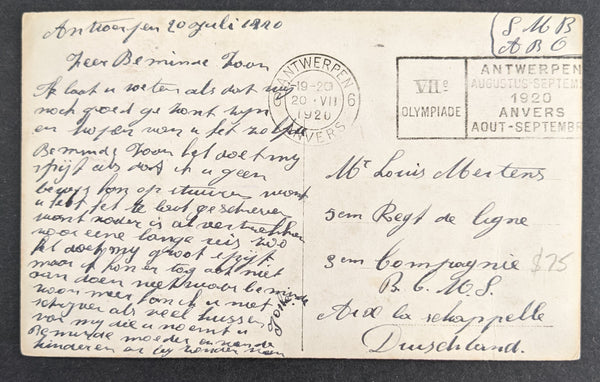 Antwerpen 20 Juli 1920
Zeer Beminde Zoon
Ik laat u weten als dat wij
nog goed gezont zijn
en hopen van u het zelfde
Beminde Zoon het doet my
spijt als dat ik u geen
kon sturen want
u hebt het te laat geschreven
want vader is al vertrokken
voor eene lange reis zoo
het doet my groot spijt
maar ik kan er tog ook niet
aan doen niet waar beminde
zoon meer kan ik u niet
schrijven als veel kussen
van my die u noemt u
Beminde moeder en van de
kinderen
S M B
A B O
ANTWERPEN 6
19-20
20 · VII
1920
ANVERS
VIIe
OLYMPIADE
ANTWERPEN
AUGUSTUS-SEPTEMB
1920
ANVERS
AOUT-SEPTEMBR
Mr Louis Mertens
5em Regt de ligne
3em Compagnie
$25
B. C. M. S.
Aix la schappelle
Duischland.